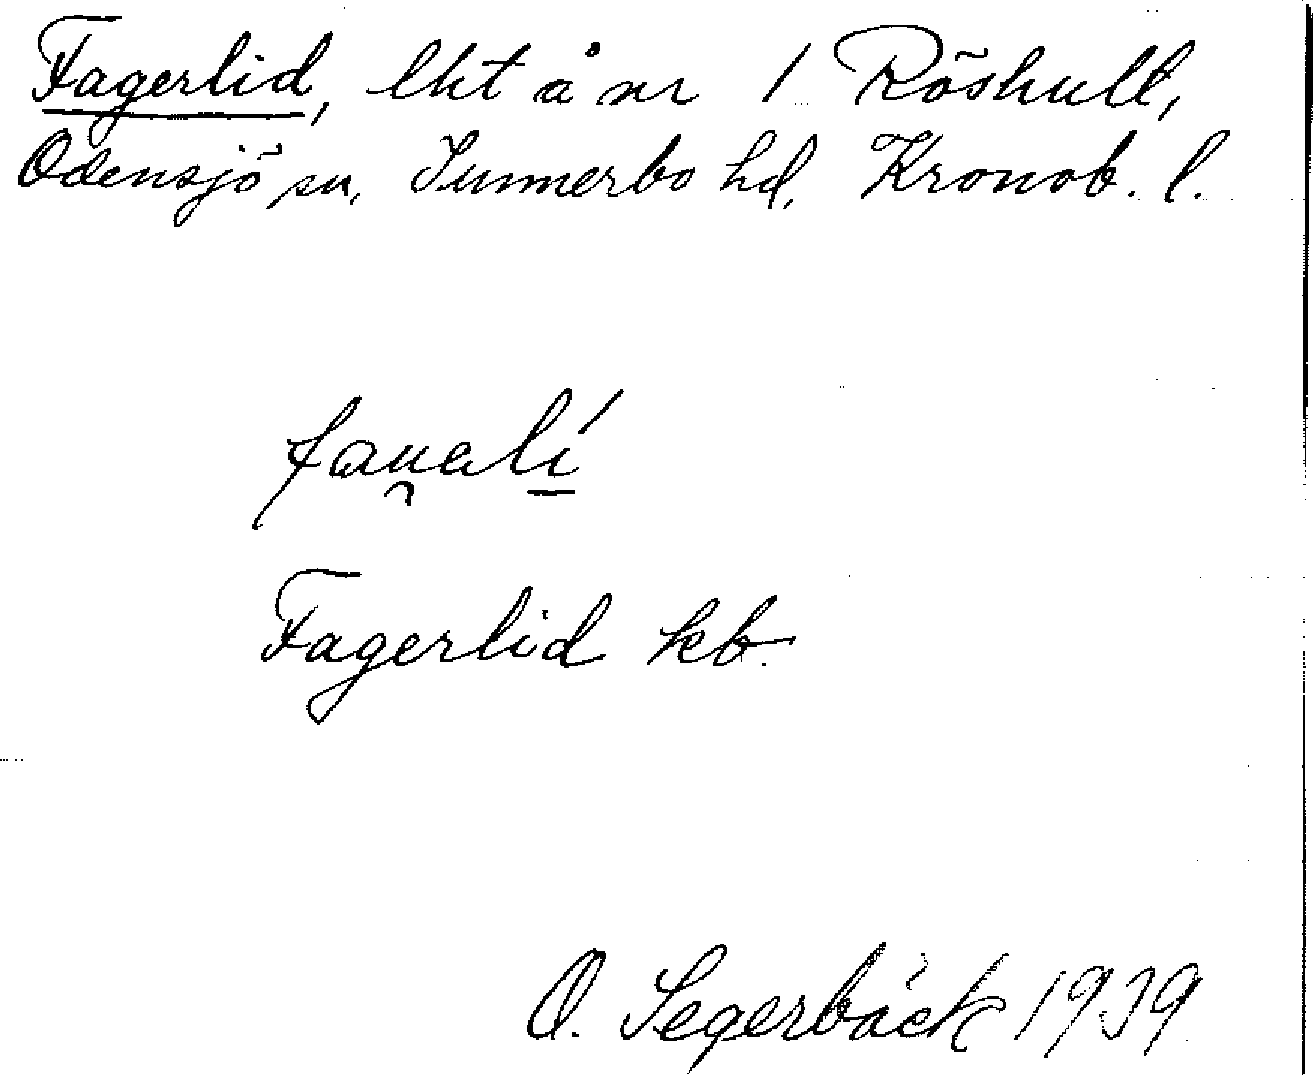 Fagerlid, lht å nr 1 Röshult,
Odensjö sn, Sunnerbo hd, Kronob. l.
fau̯alí̠
Fagerlid kb.
O. Segerbäck 1939